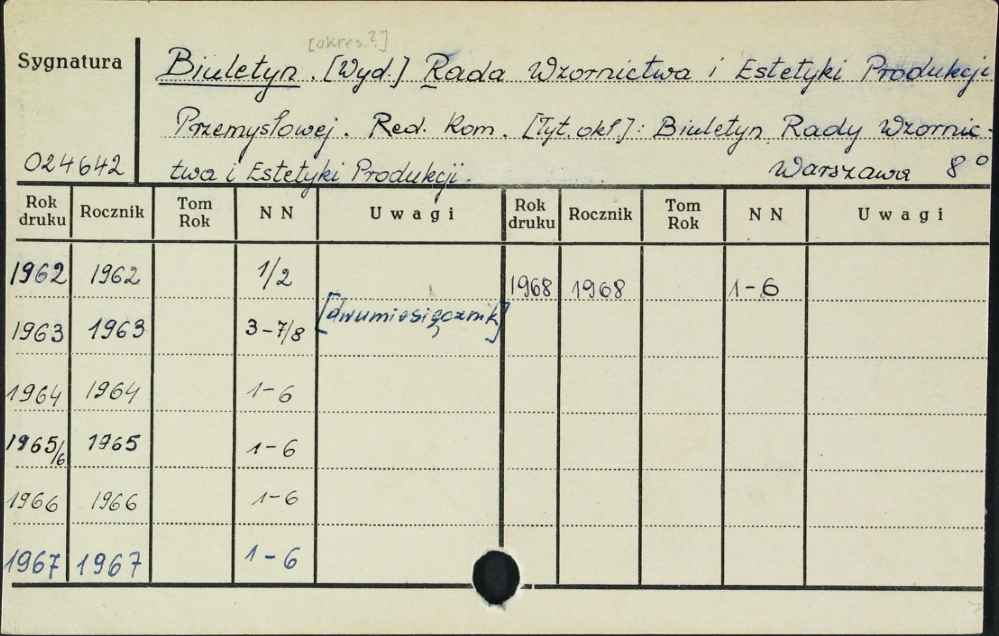 [okres.?]
Sygnatura
Biuletyn. [Wyd.] Rada Wzornictwa i Estetyki Produkcji
Przemysłowej. Red. Kom. [Tyt. okł.]: Biuletyn Rady Wzornic-
024642 twa i Estetyki Produkcji. Warszawa 8°
Rok druku Rocznik Tom Rok N N Uwagi Rok druku Rocznik Tom Rok N N Uwagi
1962 1962 1/2 1968 1968 1-6
[dwumiesięcznik]
1963 1963 3-7/8
1964 1964 1-6
1965/6 1965 1-6
1966 1966 1-6
1967 1967 1-6